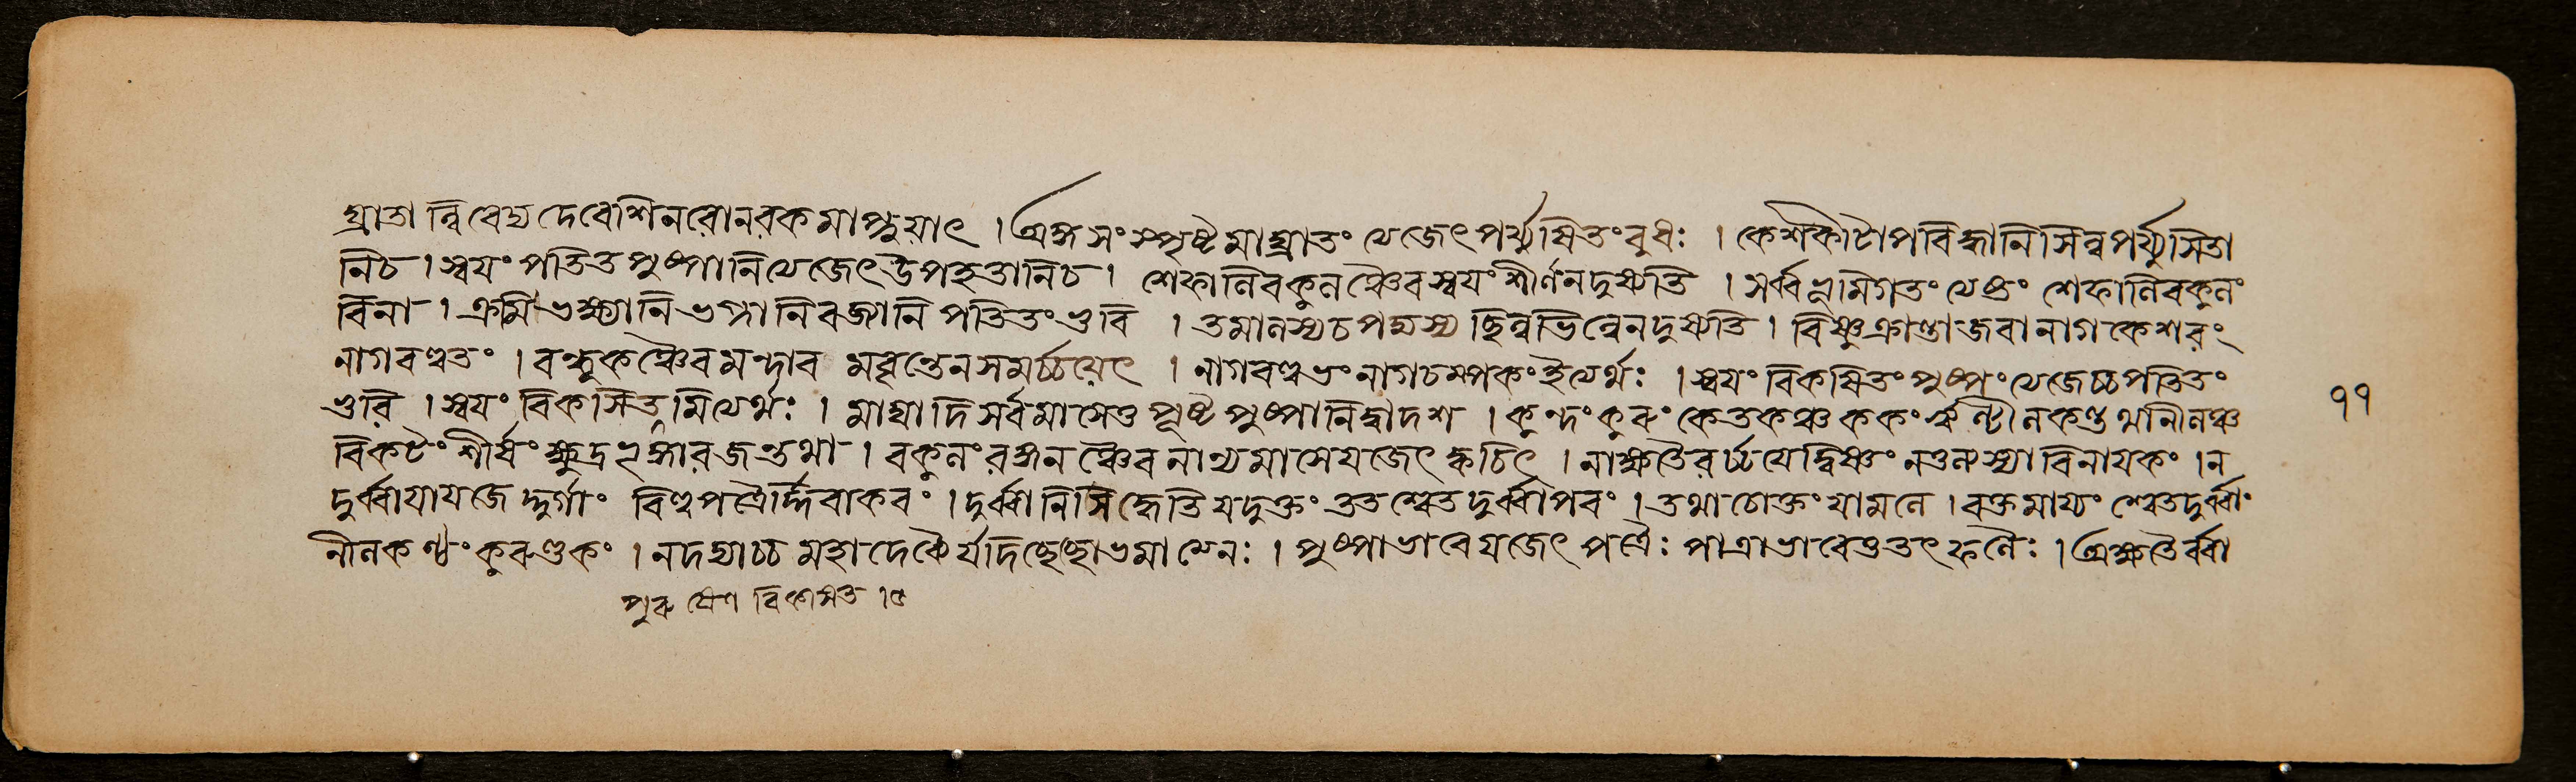 ঘ্রাত্বা ন্নিবেদ্য দেবেশি নরো নরকমাপ্নুয়াৎ । অঙ্গ সংস্পৃষ্টমাঘ্রাতং ত্যেজেৎ পর্য্যুষিতং বুধঃ । কেশকীটাপবিদ্ধানি সিন্নপর্য্যুসিতা
নিচ । স্বয়ং পতিত পুষ্পানি ত্যেজেৎ উপহৃতানিচ । শেফালিবকুলঞ্চৈব স্বয়ং শীর্ণ ন দুষ্যতি । সর্ব্বভূমিগতং ত্যেক্তং শেফালিবকুলং
বিনা । ক্রমিভক্ষ্যানি ভগ্নানি বর্জ্জানি পতিতং ভুবি । তমালস্যচ পদ্মস্য ছিন্নভিন্নে ন দুষ্যতি । বিষ্ণুক্রান্তা জবা নাগকেশরং
নাগবল্লভং । বন্ধুকঞ্চৈব মন্দার মবৃন্তেন সমর্চ্চয়েৎ । নাগবল্লভং নাগচম্পকং ইত্যের্থঃ । স্বয়ং বিকষিতং পুষ্পং ত্যেজেচ্চ পতিতং
ভুবি । স্বয়ং বিকসিত মিত্যের্থঃ । মাঘাদি সর্বমাসেতু পৃষ্ট পুষ্পানি দ্বাদশ । কুন্দং কুরুং কেতকঞ্চ ককং ঝিন্টী নকণ্ড থনীলঞ্চ
বিকটং শীর্ষং ক্ষুদ্র ভৃঙ্গারজন্তথা । বকুলং রঙ্গনঞ্চৈব নান্য মাসে যজেৎ ক্বচিৎ । নাক্ষতৈরর্চ্চয়েদ্বিষ্ণুং নতুলস্যা বিনায়কং । ন
দুর্ব্বায়া যজে দ্দুর্গাং বিল্বপত্রৈর্দ্দিবাকরং । দুর্ব্বানিসিদ্ধেতি যদুক্তং তত শ্বেতদুর্ব্বাপরং । তথাচোক্তং যামলে । রক্তমায্যং শ্বেতদুর্ব্বাং
নীলকণ্ঠং কুরুণ্ডকং । ন দদ্যাচ্চ মহাদেব্যৈ র্যদিচ্ছেচ্ছুভমাত্মনঃ । পুষ্পাভাবে যজেৎ পত্রৈঃ পাত্রাভাবেতু তৎ ফলৈঃ । অক্ষতৈর্ব্বা
১১
পুরুষেণ বিকাসিত । ৫